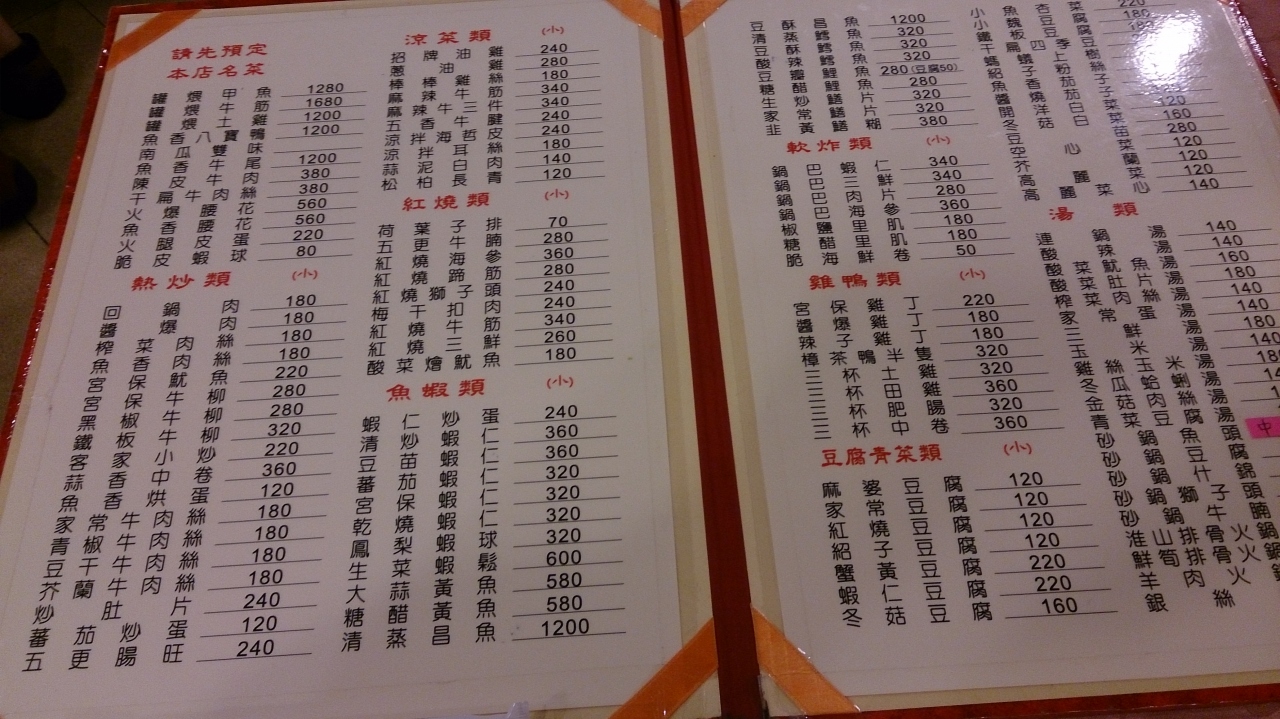 請先預定
本店名菜
罐煨甲魚 1280
罐煨牛筋 1680
罐煨土雞 1200
魚香八寶鴨 1200
南瓜雙味
魚香牛尾 1200
陳皮牛肉 380
干扁牛肉絲 380
火爆腰花 560
魚香腰花 560
火腿皮蛋 220
脆皮蝦球 80
熱炒類 (小)
回鍋肉 180
醬爆肉 180
榨菜肉絲 180
魚香肉絲 180
宮保魷魚 220
宮保牛柳 280
黑椒牛柳 280
鐵板牛柳 320
客家小炒 220
蒜香中卷 360
魚香烘蛋 120
家常牛肉絲 180
青椒牛肉絲 180
豆干牛肉絲 180
芥蘭牛肉絲 180
炒肚片 240
蕃茄炒蛋 120
五更腸旺 240
涼菜類 (小)
招牌油雞 240
蔥油雞 280
棒棒雞絲 180
麻辣牛筋 340
麻辣牛三件 340
五香牛腱 240
涼拌海哲皮 240
涼拌耳絲 180
蒜泥白肉 140
松柏長青 120
紅燒類 (小)
荷葉子排 70
五更牛腩 280
紅燒海參 360
紅燒蹄筋 280
紅燒獅子頭 240
梅干扣肉 240
紅燒牛筋 340
紅燒三鮮 260
酸菜燴魷魚 180
魚蝦類 (小)
蝦仁炒蛋 240
清炒蝦仁 360
豆苗蝦仁 360
蕃茄蝦仁 320
宮保蝦仁 320
乾燒蝦仁 320
鳳梨蝦球 320
生菜蝦鬆 600
大蒜黃魚 580
糖醋黃魚 580
清蒸昌魚 1200
豆酥昌魚 1200
清蒸鱈魚 320
豆酥鱈魚 320
酸辣鱈魚 320
豆瓣鯉魚 280(豆腐50)
糖醋鯉魚 280
生炒鱔片 320
家常鱔片 320
韭黃鱔糊 380
軟炸類 (小)
鍋巴蝦仁 340
鍋巴三鮮 340
鍋巴肉片 280
鍋巴海參 360
椒鹽里肌 180
糖醋里肌 180
脆海鮮卷 50
雞鴨類 (小)
宮保雞丁 220
醬爆雞丁 180
辣子雞丁 180
樟茶鴨半隻 320
三杯土雞 320
三杯田雞 360
三杯肥腸 320
三杯中卷 360
豆腐青菜類 (小)
麻婆豆腐 120
家常豆腐 120
紅燒豆腐 120
紹子豆腐 120
蟹黃豆腐 220
蝦仁豆腐 220
冬菇豆腐 160
小魚杏菜 220
鐵板豆腐
干扁四季豆
螞蟻上樹
紹子粉絲
魚香茄子
醬燒茄子
開洋白菜 120
冬菇白菜 160
豆苗 280
空心菜 120
芥蘭 120
高麗菜 120
高麗菜心 140
湯類
連鍋湯 140
酸辣湯 140
酸菜魷魚湯 160
酸菜肚片湯 180
榨菜肉絲湯 140
家常蛋湯 140
三鮮湯 180
玉米湯
冬瓜蛤蜊湯
金菇肉絲湯
青菜豆腐湯
砂鍋魚頭
中
砂鍋豆腐
砂鍋什錦
砂鍋獅子頭
砂鍋牛腩
淮山排骨火鍋
鮮筍排骨火鍋
羊肉火
銀絲